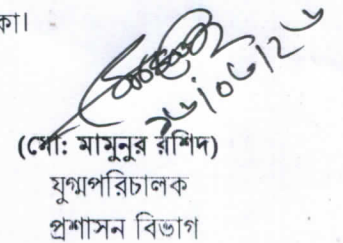 কা।
(মো: মামুনুর রশিদ)
যুগ্মপরিচালক
প্রশাসন বিভাগ